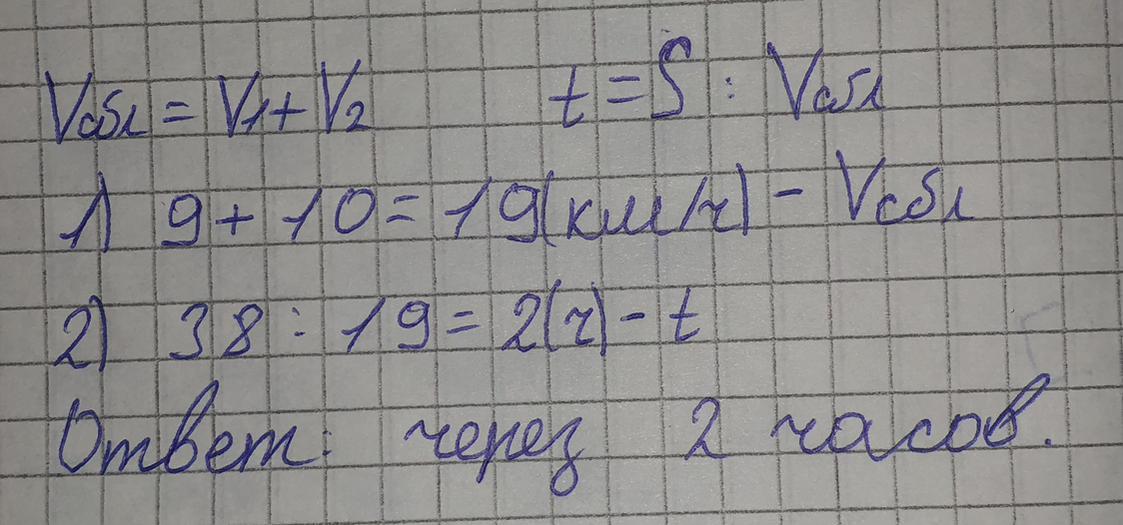 Vсбл = V1 + V2 t = S : Vсбл
1) 9 + 10 = 19(км/ч) - Vсбл
2) 38 : 19 = 2(ч) - t
Ответ: через 2 часов.